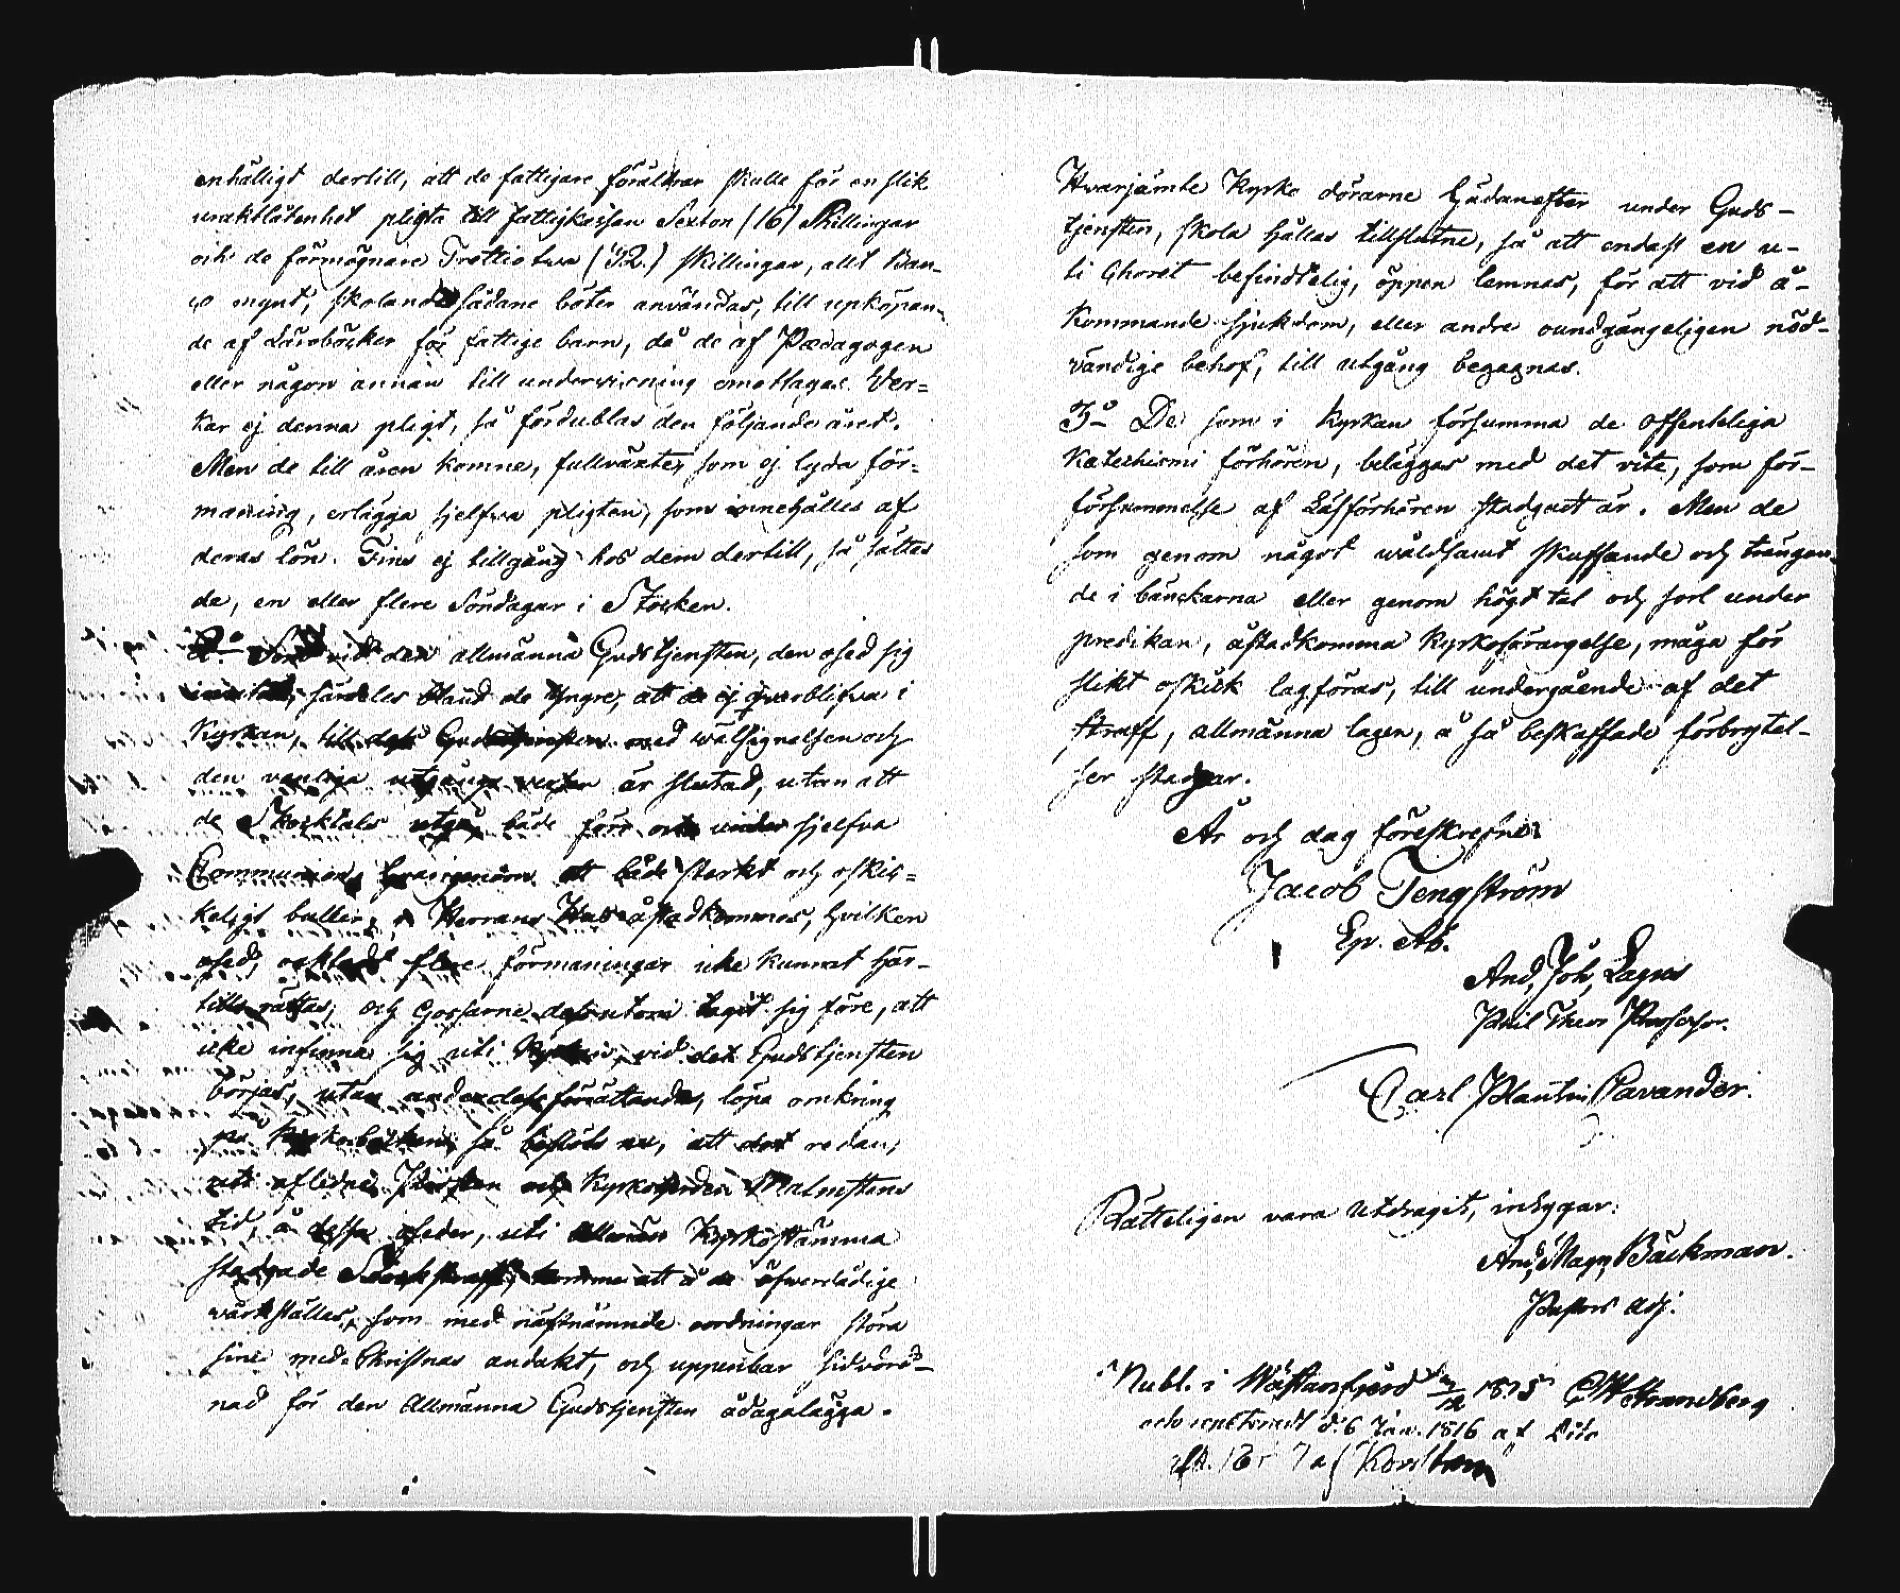 enhälligt dertill, att de fattigare föräldrar skulle för en slik
vraktlåtenhet pligta till fattigkassan Sexton (16) Skillingar
och de förmögnare Trettiotwa (32.) skillingar, allt Ban-
co mynt, skolande sådane böter användas, till upköpan-
de af Läroböcker för fattige barn, då de af Pædagogen
eller någon annan till underwisning emottagas. Ver-
kar ej denna pligt, så fördublas den följande året.
Men de till åren komne, fullväxte, som ej lyda för-
maning, erlägga sjelfwa pligten, som innehålles af
deras lön. Fins ej tillgång hos dem dertill, så sättas
de, en eller flere Söndagar i Stocken.
2:o Som vid den allmänna Gudstjensten, den osed sig
särdeles bland de Yngre, att de ej qvarblifva i
Kyrkan, till dess Gudstjensten med wälsignelsen och
den vanliga utgångs versen är slutad, utan att
de Skocktals utgå, både före och under sjelfva
Communion, hvarigenom ett både starkt och oskic-
keligt buller, i Herrans Hus åstadkommes, hvilken
osed, oaktadt flere förmaningar icke kunnat här-
tills rättas, och Gossarne dessutom tagit sig före, att
icke infinna sig uti Kyrkan, vid det Gudstjensten
börjas, utan andra dess förrättande, löpa omkring
på Kyrkobacken, så besl​öts nu, att det redan,
uti aflidne Probsten och Kyrkoherden Malmstens
tid, å dessa oseder, uti Allmän Kyrkostämma
stadgade Stockstraff, komme att å de öfwerdådige
wärkställas, som med nästnämnde oordningar störa
sine med-Christnas andakt, och uppenbar sidvörd-
nad för den Allmänna Gudstjensten ådagalägga.
Hvarjämte Kyrko dörarne hädanefter under Guds-
tjensten, skola hållas tillslutne, så att endast en u-
ti Choret befindtelig, öppen lemnas, för att vid å-
kommande sjukdom, eller andre oundgängeligen nöd-
vändige behof, till utgång begagnas.
3:o De som i Kyrkan försumma de offenteliga
Katechismi förhören, beläggas med det vite, som för-
försummelse af Läsförhören stadgadt är. Men de
som genom något wåldsamt skuffande och trängan-
de i bänckarna eller genom högt tal och sorl under
predikan, åstadkomma Kyrkoförargelse, måga för
slikt oskick lagföras, till undergående af det
straff, allmänna lagen, å så beskaffade förbrytel-
ser stadgar.
År och dag föreskrefne:
Jacob Tengström
Ep. Ab.
And, Joh, Lagus
Phil Theor Professor.
Carl Plantin Pavander.
Rätteligen vara Utdragit, intygar:
And, Magn, Bäckman.
Pastors adj.
Publ. i Wästanfjerd 1815 Strandberg
d. 6 Jan. 1816 af